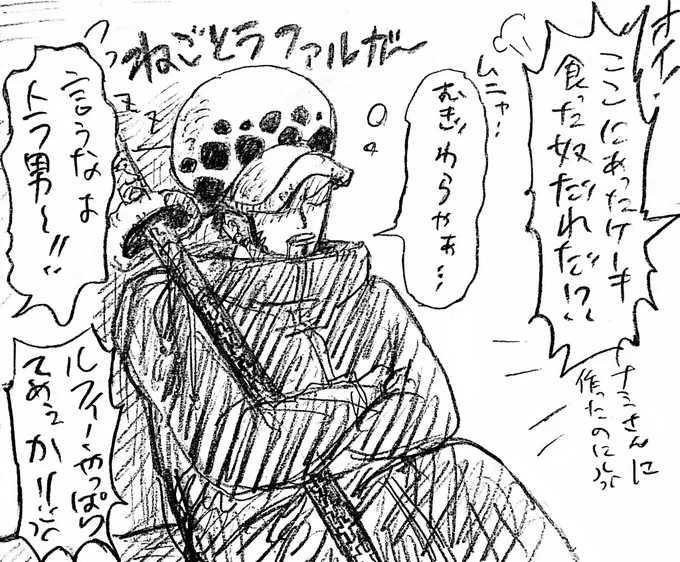 ねごとラファルガ〜
オイ!
ここにあったケーキ
食った奴だれだ!?
ナミさんに
作ったのにっ
ムニャ…
むぎわらやぁ…
言うなよ
トラ男〜!!
ルフィーやっぱり
てめェか!!